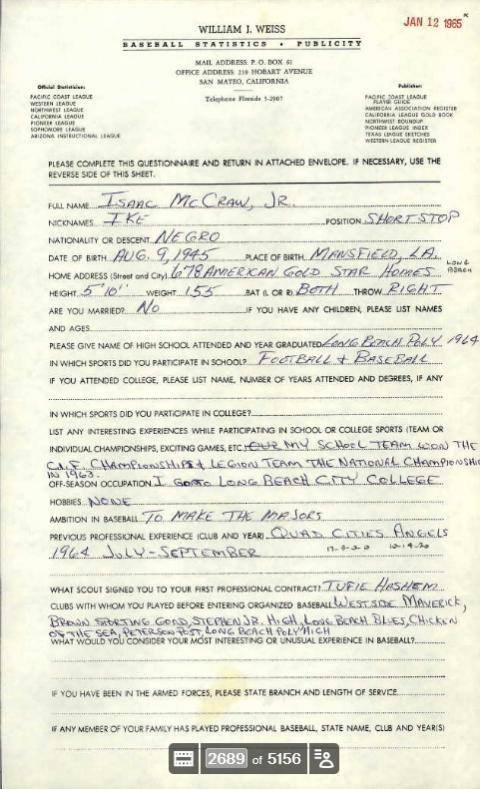 JAN 12 1965
WILLIAM J. WEISS
BASEBALL STATISTICS • PUBLICITY
MAIL ADDRESS: P. O. BOX 61
OFFICE ADDRESS: 210 HOBART AVENUE
SAN MATEO, CALIFORNIA
Telephone Fireside 5-2907
Official Statistician:
PACIFIC COAST LEAGUE
WESTERN LEAGUE
NORTHWEST LEAGUE
CALIFORNIA LEAGUE
PIONEER LEAGUE
SOPHOMORE LEAGUE
ARIZONA INSTRUCTIONAL LEAGUE
Publisher:
PACIFIC COAST LEAGUE
PLAYER GUIDE
AMERICAN ASSOCIATION REGISTER
CALIFORNIA LEAGUE GOLD BOOK
NORTHWEST ROUNDUP
PIONEER LEAGUE INDEX
TEXAS LEAGUE SKETCHES
WESTERN LEAGUE REGISTER
PLEASE COMPLETE THIS QUESTIONNAIRE AND RETURN IN ATTACHED ENVELOPE. IF NECESSARY, USE THE
REVERSE SIDE OF THIS SHEET.
FULL NAME ISAAC McCRAW, JR.
NICKNAMES IKE POSITION SHORTSTOP
NATIONALITY OR DESCENT NEGRO
DATE OF BIRTH AUG. 9, 1945 PLACE OF BIRTH MANSFIELD, LA.
HOME ADDRESS (Street and City) 678 AMERICAN GOLD STAR HOMES LONG BEACH
HEIGHT 5'10" WEIGHT 155 BAT (L OR R) BOTH THROW RIGHT
ARE YOU MARRIED? NO IF YOU HAVE ANY CHILDREN, PLEASE LIST NAMES
AND AGES
PLEASE GIVE NAME OF HIGH SCHOOL ATTENDED AND YEAR GRADUATED LONG BEACH POLY 1964
IN WHICH SPORTS DID YOU PARTICIPATE IN SCHOOL? FOOTBALL & BASEBALL
IF YOU ATTENDED COLLEGE, PLEASE LIST NAME, NUMBER OF YEARS ATTENDED AND DEGREES, IF ANY
IN WHICH SPORTS DID YOU PARTICIPATE IN COLLEGE?
LIST ANY INTERESTING EXPERIENCES WHILE PARTICIPATING IN SCHOOL OR COLLEGE SPORTS (TEAM OR
INDIVIDUAL CHAMPIONSHIPS, EXCITING GAMES, ETC. MY SCHOOL TEAM WON THE
C.I.F. CHAMPIONSHIPS & LEGION TEAM THE NATIONAL CHAMPIONSHIP
IN 1963.
OFF-SEASON OCCUPATION I GO TO LONG BEACH CITY COLLEGE
HOBBIES NONE
AMBITION IN BASEBALL TO MAKE THE MAJORS
PREVIOUS PROFESSIONAL EXPERIENCE (CLUB AND YEAR) QUAD CITIES ANGELS
1964 JULY-SEPTEMBER
WHAT SCOUT SIGNED YOU TO YOUR FIRST PROFESSIONAL CONTRACT? TUFIE HASHEM
CLUBS WITH WHOM YOU PLAYED BEFORE ENTERING ORGANIZED BASEBALL WESTSIDE MAVERICK,
BROWN SPORTING GOOD, STEPHEN JR. HIGH, LONG BEACH BLUES, CHICKEN
OF THE SEA, PETERSON POST, LONG BEACH POLY HIGH
WHAT WOULD YOU CONSIDER YOUR MOST INTERESTING OR UNUSUAL EXPERIENCE IN BASEBALL?
IF YOU HAVE BEEN IN THE ARMED FORCES, PLEASE STATE BRANCH AND LENGTH OF SERVICE
IF ANY MEMBER OF YOUR FAMILY HAS PLAYED PROFESSIONAL BASEBALL, STATE NAME, CLUB AND YEAR(S)
2689 of 5156